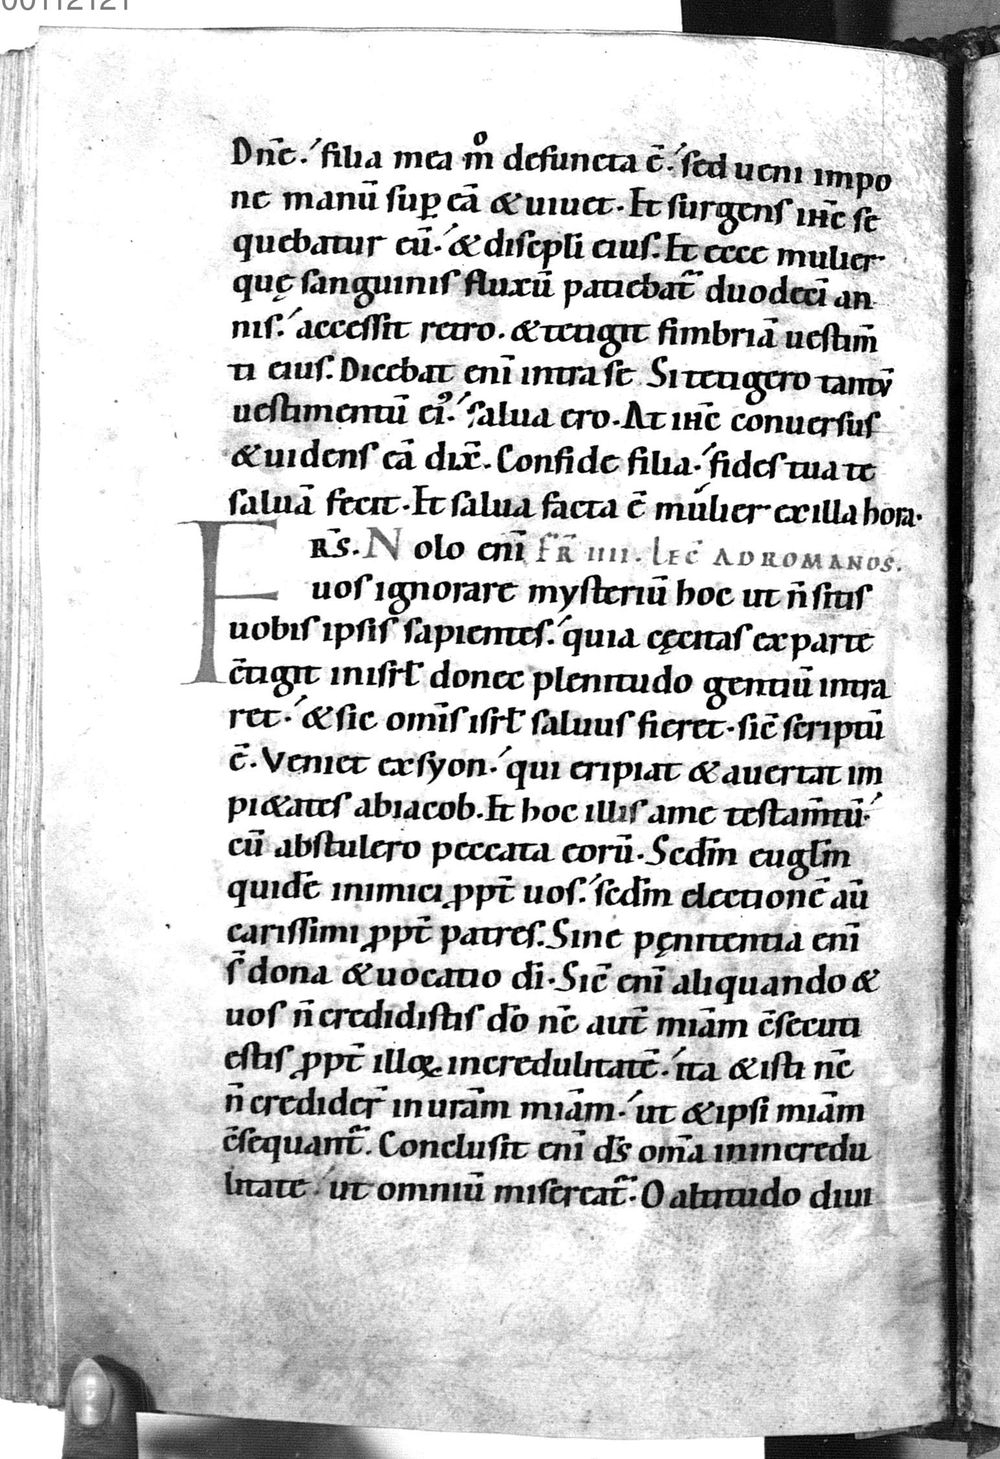 00112121
Dn̄e. filia mea m̊ defuncta ē. sed ueni impo
ne manū sup̱ eā & uiuet. Et surgens ih̄c se
quebatur eū. & discpl̄i eius. Et ecce mulier
quę sanguinis fluxū patiebat̄ duodecī an
nis. accessit retro. & tetigit fimbriā uestim̄
ti eius. Dicebat enī intra se Si tetigero tantū
uestimentū ei᷒. salua ero. At ih̄c conuersus
& uidens eā dix̄. Confide filia. fides tua te
saluā fecit. Et salua facta ē mulier ex illa hora.
FRS. Nolo enī FR̄ IIII. LEC̄ AD ROMANOS.
uos ignorare mysteriū hoc ut n̄ sitis
uobis ipsis sapientes. quia cęcitas ex parte
c̄tigit in isrl̄ donec plenitudo gentiū intra
ret. & sic omīs isrl̄ saluus fieret. sic̄ scriptū
ē. Veniet ex syon. qui eripiat & auertat im
pi&ates ab iacob. Et hoc illis a me testam̄tū.
cū abstulero peccata eorū. Scdm̄ eugl̄m
quidē inimici ꝓpt̄ uos. scdm̄ electionē aū
carissimi ꝓpt̄ patres. Sine pęnitentia enī
s̄ dona & uocatio dī. Sic̄ enī aliquando &
uos n̄ credidistis dō nc̄ aut̄ miām c̄secuti
estis ꝓpt̄ illoꝝ incredulitatē. ita & isti nc̄
n̄ credider̄ in ur̄am miām. ut & ipsi miām
c̄sequant̄. Conclusit enī ds̄ om̄a in incredu
litate. ut omniū misereat̄. O altitudo diui